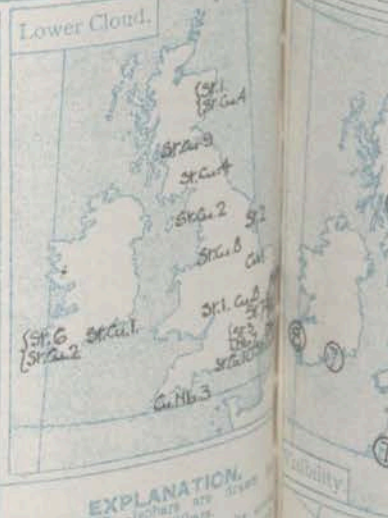 Lower Cloud.
St.1.
St.Cu.4
St.Cu.9
St.Cu.4
St.Cu.2
St.2
St.Cu.8
Cu.1
St.1. Cu.8
St.6 St.Cu.1.
St.Cu.2
Cu.Nb.3
8
7
7
Visibility
EXPLANATION.
are drawn